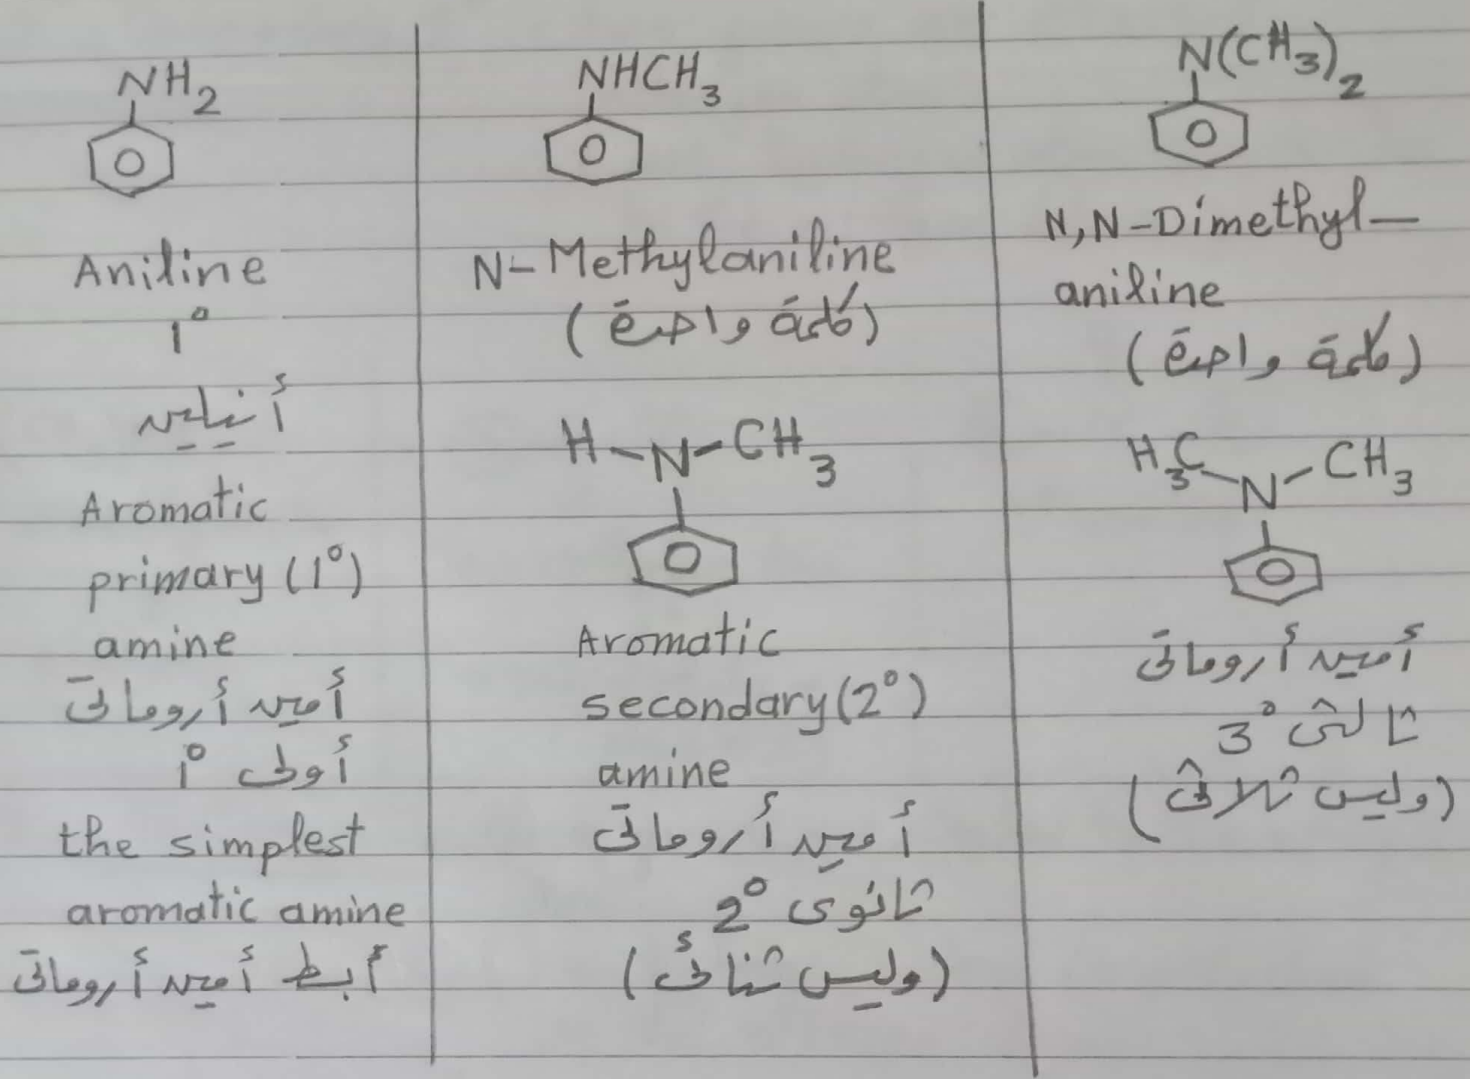 NH₂
Aniline
1°
أنيلين
Aromatic
primary (1°)
amine
أمين أروماتى
أولى 1°
the simplest
aromatic amine
أبسط أمين أروماتى
NHCH₃
N-Methylaniline
(كلمة واحدة)
H-N-CH₃
Aromatic
secondary (2°)
amine
أمين أروماتى
ثانوى 2°
(وليس ثنائى)
N(CH₃)₂
N,N-Dimethyl-
aniline
(كلمة واحدة)
H₃C-N-CH₃
أمين أروماتى
ثالثى 3°
(وليس ثلاثى)